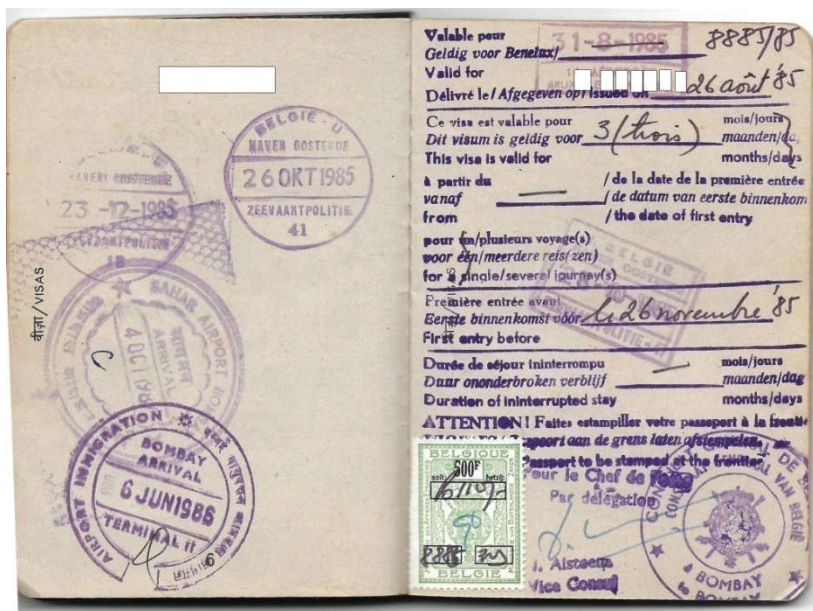 BELGIE - U
HAVEN OOSTENDE
26 OKT 1985
ZEEVAARTPOLITIE
41
HAVEN OOSTENDE
23 -12- 1985
ZEEVAARTPOLITIE
वीज़ा/VISAS
SAHAR AIRPORT
आगमन
ARRIVAL
4 OCT
AIRPORT IMMIGRATION
BOMBAY
ARRIVAL
6 JUN 1986
TERMINAL II
Valable pour
Geldig voor Benelux
Valid for
31-8-1985
8885/85
Délivré le / Afgegeven op / Issued on 26 août '85
Ce visa est valable pour mois/jours
Dit visum is geldig voor 3 (trois) maanden/
This visa is valid for months/days
à partir du / de la date de la première entrée
vanaf / de datum van eerste binnenkom
from / the date of first entry
pour un/plusieurs voyage(s)
voor één/meerdere reis(zen)
for a single/several journey(s)
BELGIE
Première entrée avant
Eerste binnenkomst vóór le 26 novembre '85
First entry before
Durée de séjour ininterrompu mois/jours
Duur ononderbroken verblijf maanden/dag
Duration of ininterrupted stay months/days
ATTENTION! Faites estampiller votre passeport à la
aan de grens laten afstempelen
Passport to be stamped at the frontier
BELGIQUE
500F
BELGIE
Pour le Chef de
Par délégation
Vice Consul
VAN BELGIE
à BOMBAY
te BOMBAY